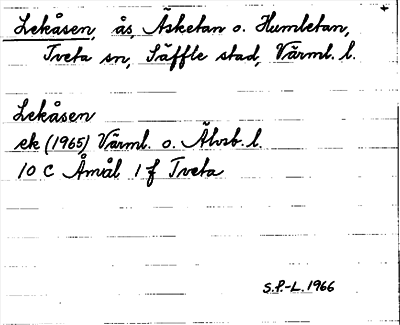 Lekåsen, ås, Äsketan o. Humletan,
Tveta sn, Säffle stad, Värml. l.
Lekåsen
ek (1965) Värml. o. Älvsb. l.
10 C Åmål 1 f Tveta
S.P.-L. 1966